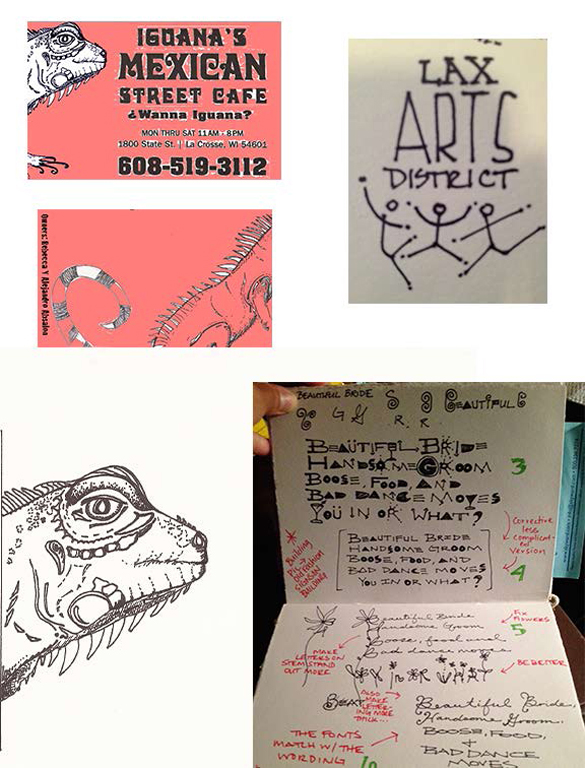 IGUANA'S
MEXICAN
STREET CAFE
¿Wanna Iguana?
MON THRU SAT 11AM - 8PM
1800 State St. | La Crosse, WI 54601
608-519-3112
LAX
ARTS
DISTRICT
Owners: Rebecca Y Alejandro
BEAUTIFUL BRIDE
BEAUTIFUL
G G
R R
BEAUTIFUL BRIDE
HANDSOME GROOM
BOOSE, FOOD, AND
BAD DANCE MOVES
YOU IN OR WHAT?
3
CORRECTIVE
LESS
COMPLICAT-
ED
VERSION
BEAUTIFUL BRIDE
HANDSOME GROOM
BOOSE, FOOD, AND
BAD DANCE MOVES
YOU IN OR WHAT?
4
Building
BUILDING
Beautiful Bride
Handsome Groom
Boose, food and
Bad dance moves
YOU IN OR WHAT
5
FIX
FLOWERS
MAKE
LETTERS ON
STEM STAND
OUT MORE
BE BETTER
ALSO
MAKE
LETTER-
ING MORE
THICK...
Beautiful Bride,
Handsome Groom.
BOOSE, FOOD,
+
BAD DANCE
MOVES
THE FONTS
MATCH W/ THE
WORDING